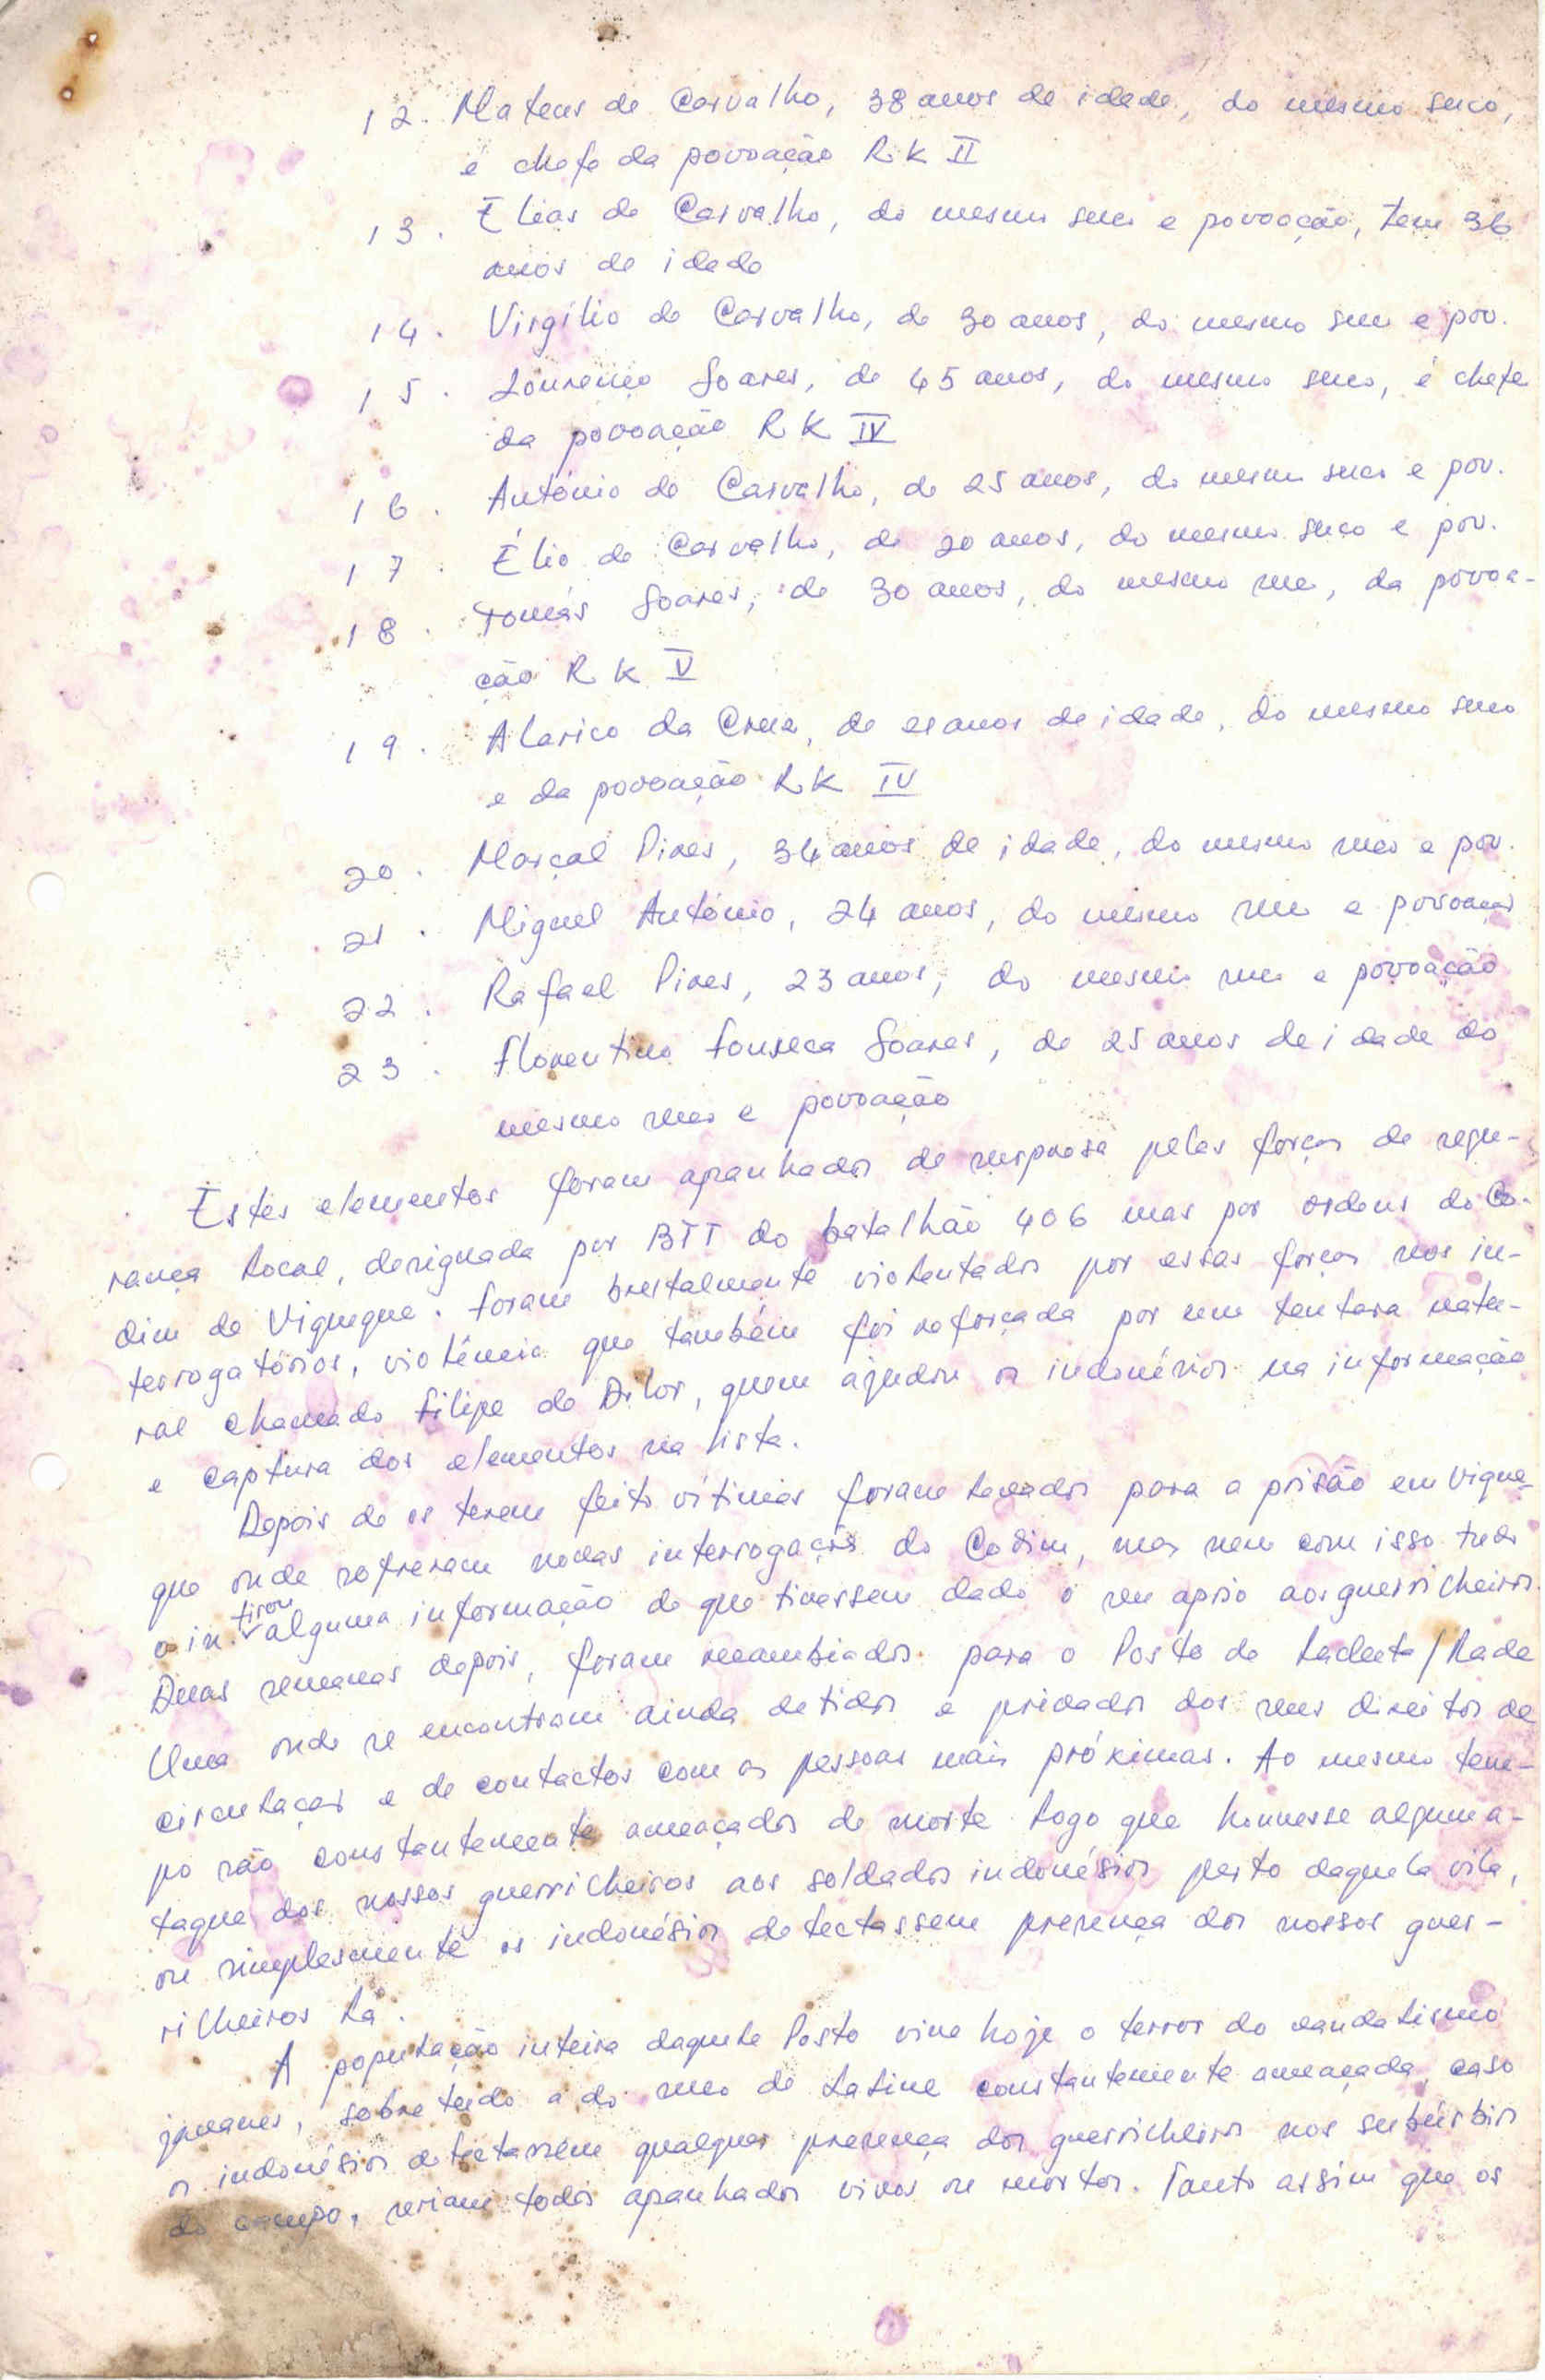 12. Mateus de Carvalho, 38 anos de idade, do mesmo suco,
e chefe da povoação R K II
13. Elias de Carvalho, do mesmo suco e povoação, tem 36
anos de idade
14. Virgílio de Carvalho, de 30 anos, do mesmo suco e pov.
15. Lourenço Soares, de 45 anos, do mesmo suco, é chefe
da povoação R K IV
16. António de Carvalho, de 25 anos, do mesmo suco e pov.
17. Élio de Carvalho, de 20 anos, do mesmo suco e pov.
18. Tomás Soares, de 30 anos, do mesmo suco, da povoa-
ção R K V
19. Alarico da Cruz, de 21 anos de idade, do mesmo suco
e da povoação R K IV
20. Marçal Pires, 34 anos de idade, do mesmo suco e pov.
21. Miguel António, 24 anos, do mesmo suco e povoação
22. Rafael Pires, 23 anos, do mesmo suco e povoação
23. Florentino Fonseca Soares, de 25 anos de idade do
mesmo suco e povoação
Estes elementos foram apanhados de surpresa pelas forças de segu-
rança local, designada por BTT do batalhão 406 mas por ordens do Co-
dim de Viqueque. Foram brutalmente violentados por essas forças nos in-
terrogatórios, violência que também foi reforçada por um tentara natu-
ral chamado Filipe de Dilor, quem ajudou os indonésios na informação
e captura dos elementos na lista.
Depois de os terem feito vítimas foram levados para a prisão em Vique-
que onde sofreram novas interrogações do Codim, mas nem com isso tudo
o in. tirou alguma informação de que tivessem dado o seu apoio aos guerrilheiros.
Duas semanas depois, foram recambiados para o Posto de Lacluta/Rade
Uma onde se encontram ainda detidos e privados dos seus direitos de
circulação e de contactos com as pessoas mais próximas. Ao mesmo tem-
po são constantemente ameaçados de morte logo que houvesse algum a-
taque dos nossos guerrilheiros aos soldados indonésios perto daquela vila,
ou simplesmente os indonésios detectassem presença dos nossos guer-
rilheiros lá.
A população inteira daquele Posto vive hoje o terror do vandalismo
javanes, sobretudo a do suco de Laline constantemente ameaçada, caso
os indonésios detectassem qualquer presença dos guerrilheiros nos subúrbios
do campo, seriam todos apanhados vivos ou mortos. Tanto assim que os